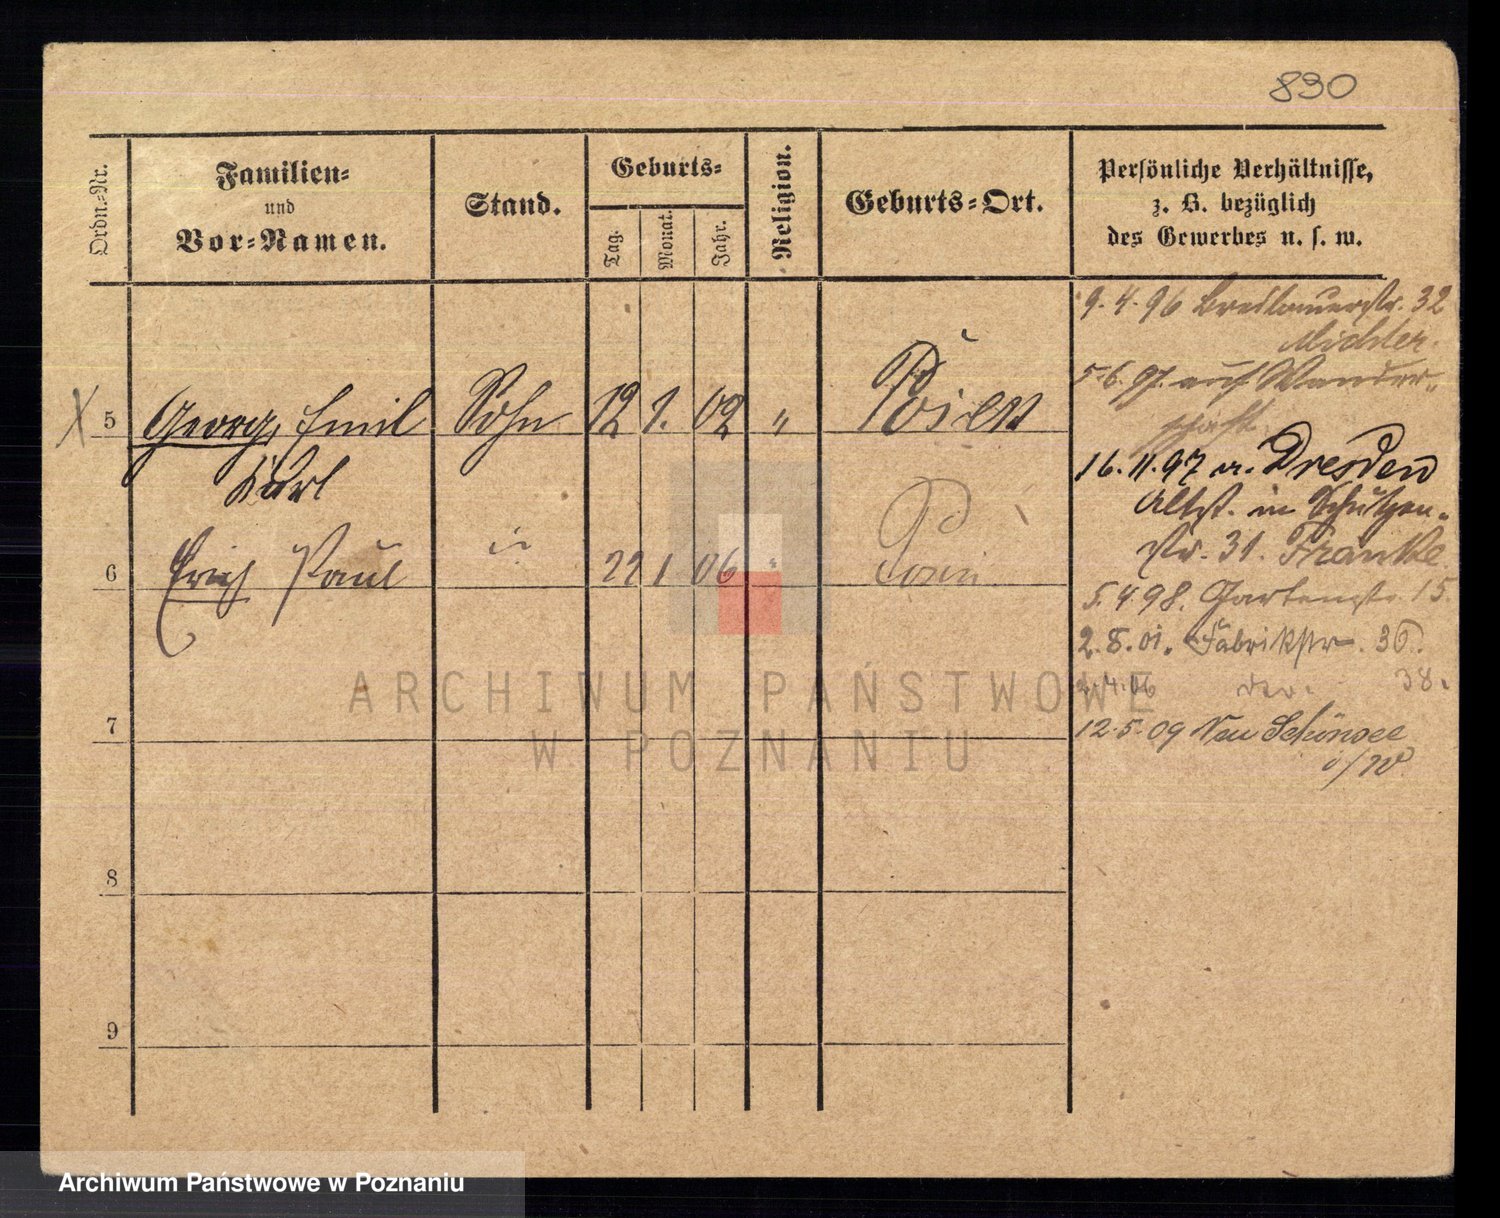 830
Ordn.-Nr.
Familien-
und
Vor-Namen.
Stand.
Geburts-
Tag.
Monat.
Jahr.
Religion.
Geburts-Ort.
Persönliche Verhältnisse,
z. B. bezüglich
des Gewerbes u. s. w.
9. 4. 96 Breslauerstr. 32
Michler.
5. 6. 97. auf Wander-
schaft.
X 5 Georg, Emil Sohn 12 1. 02 " Posen
Karl
16. 11. 97 a. Dresden
Altst. in Schützen-
str. 31. Franke.
6 Erich Paul " 22 1 06 " Posen
5. 4. 98. Gartenstr. 15.
2. 8. 01. Fabrikstr. 36.
4. 06 38.
7
12. 5. 09 Neu Schönsee
i/W
8
9
ARCHIWUM PAŃSTWOWE
W POZNANIU
Archiwum Państwowe w Poznaniu